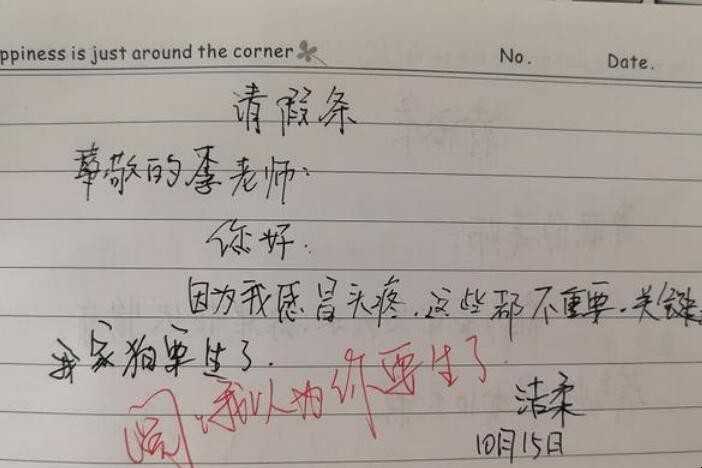 ppiness is just around the corner No. Date.
请假条
尊敬的李老师:
你好.
因为我感冒头疼.这些都不重要.关键
我家狗要生了.
阅.我以为你要生了
洁柔
10月15日